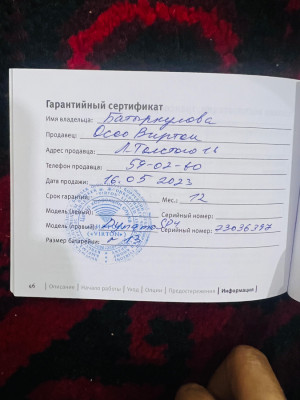 Гарантийный сертификат
Имя владельца: Батыркулова
Продавец: ОсОО Виртон
Адрес продавца: Л.Толстого 16
Телефон продавца: 59-02-60
Дата продажи: 16.05 2023
Срок гарантии: Мес.: 12
Модель (левый): Серийный номер:
Модель (правый): Серийный номер: 22036397
Размер батарейки: 13
46 Описание Начало работы Уход Опции Предостережения Информация